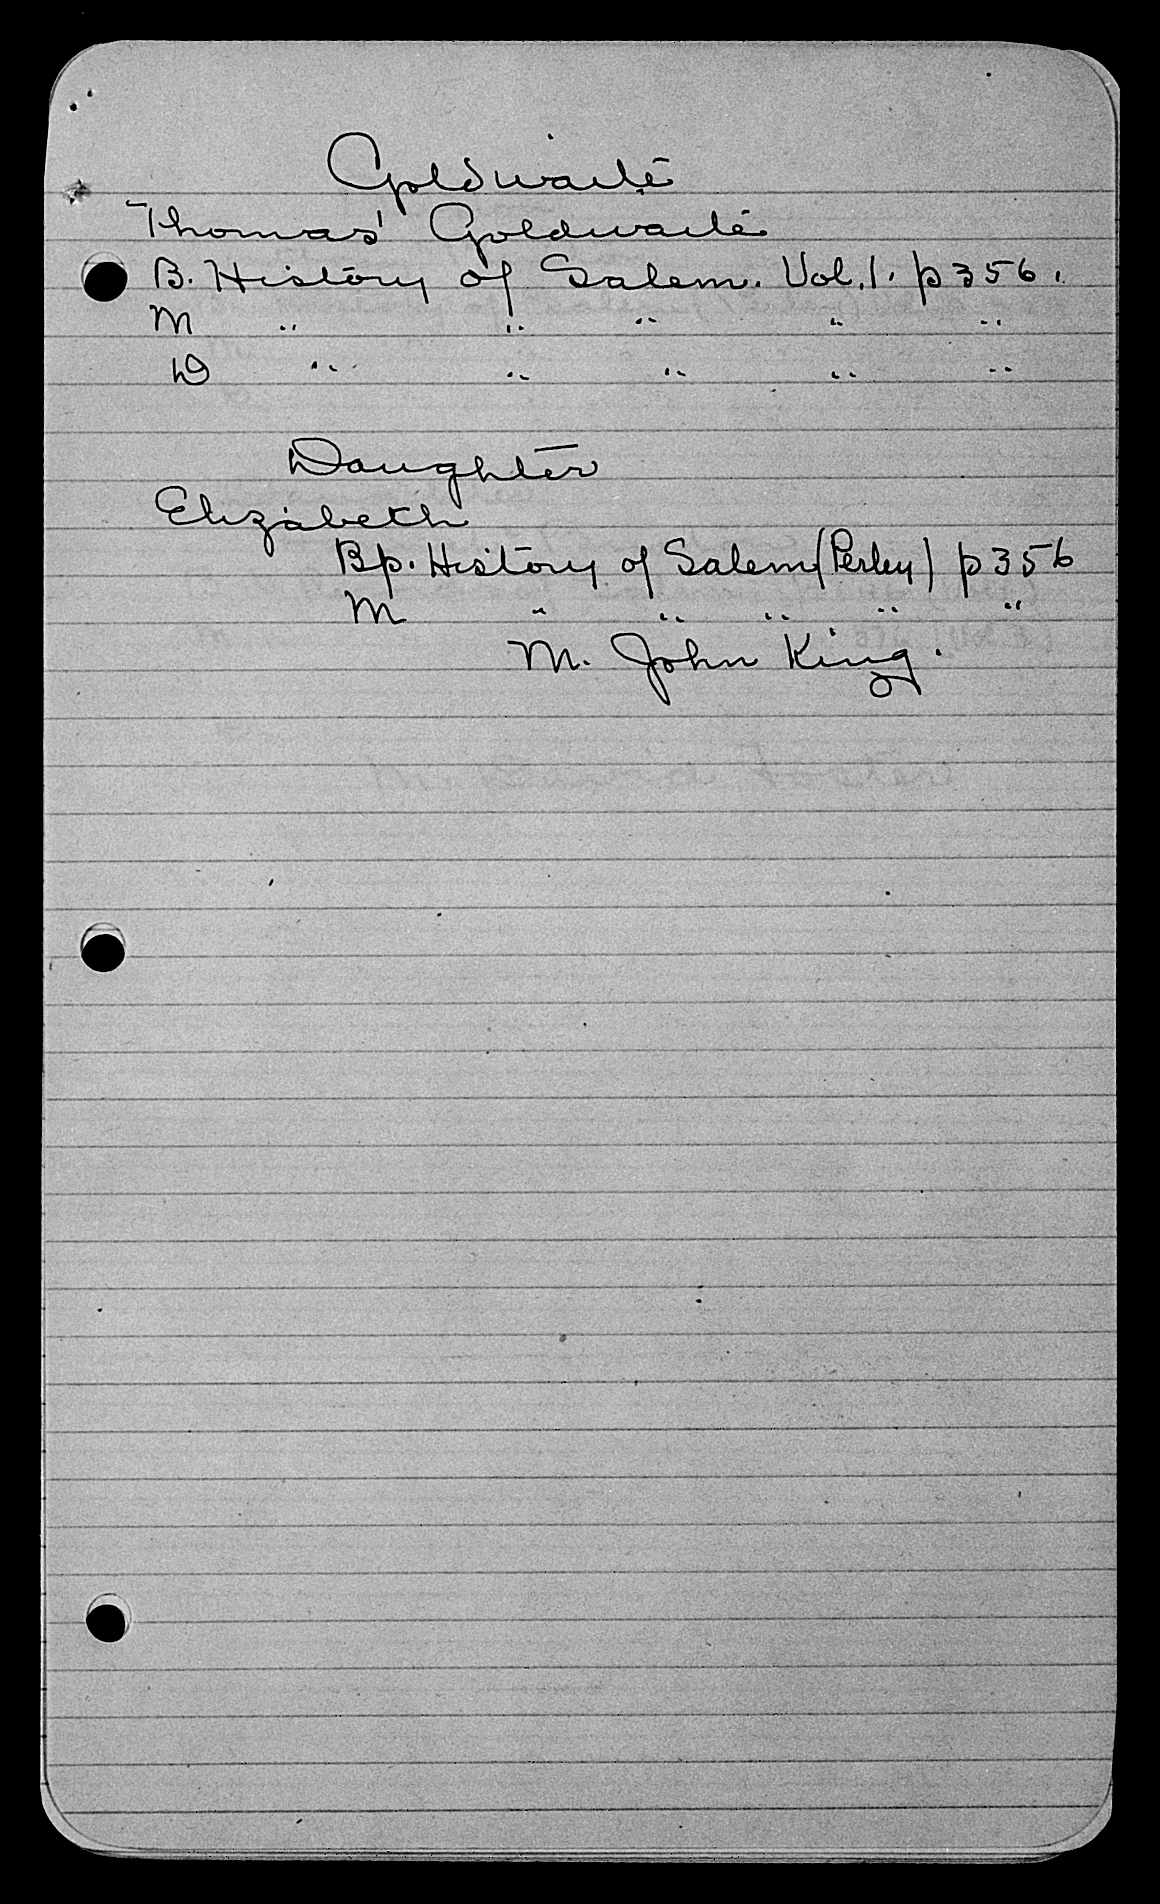 Goldwaite
Thomas¹ Goldwaite
B. History of Salem. Vol. 1. p 356.
M " " " " "
D " " " " "
Daughter
Elizabeth
Bp. History of Salem (Perley) p 356
M " " " " "
M. John King.